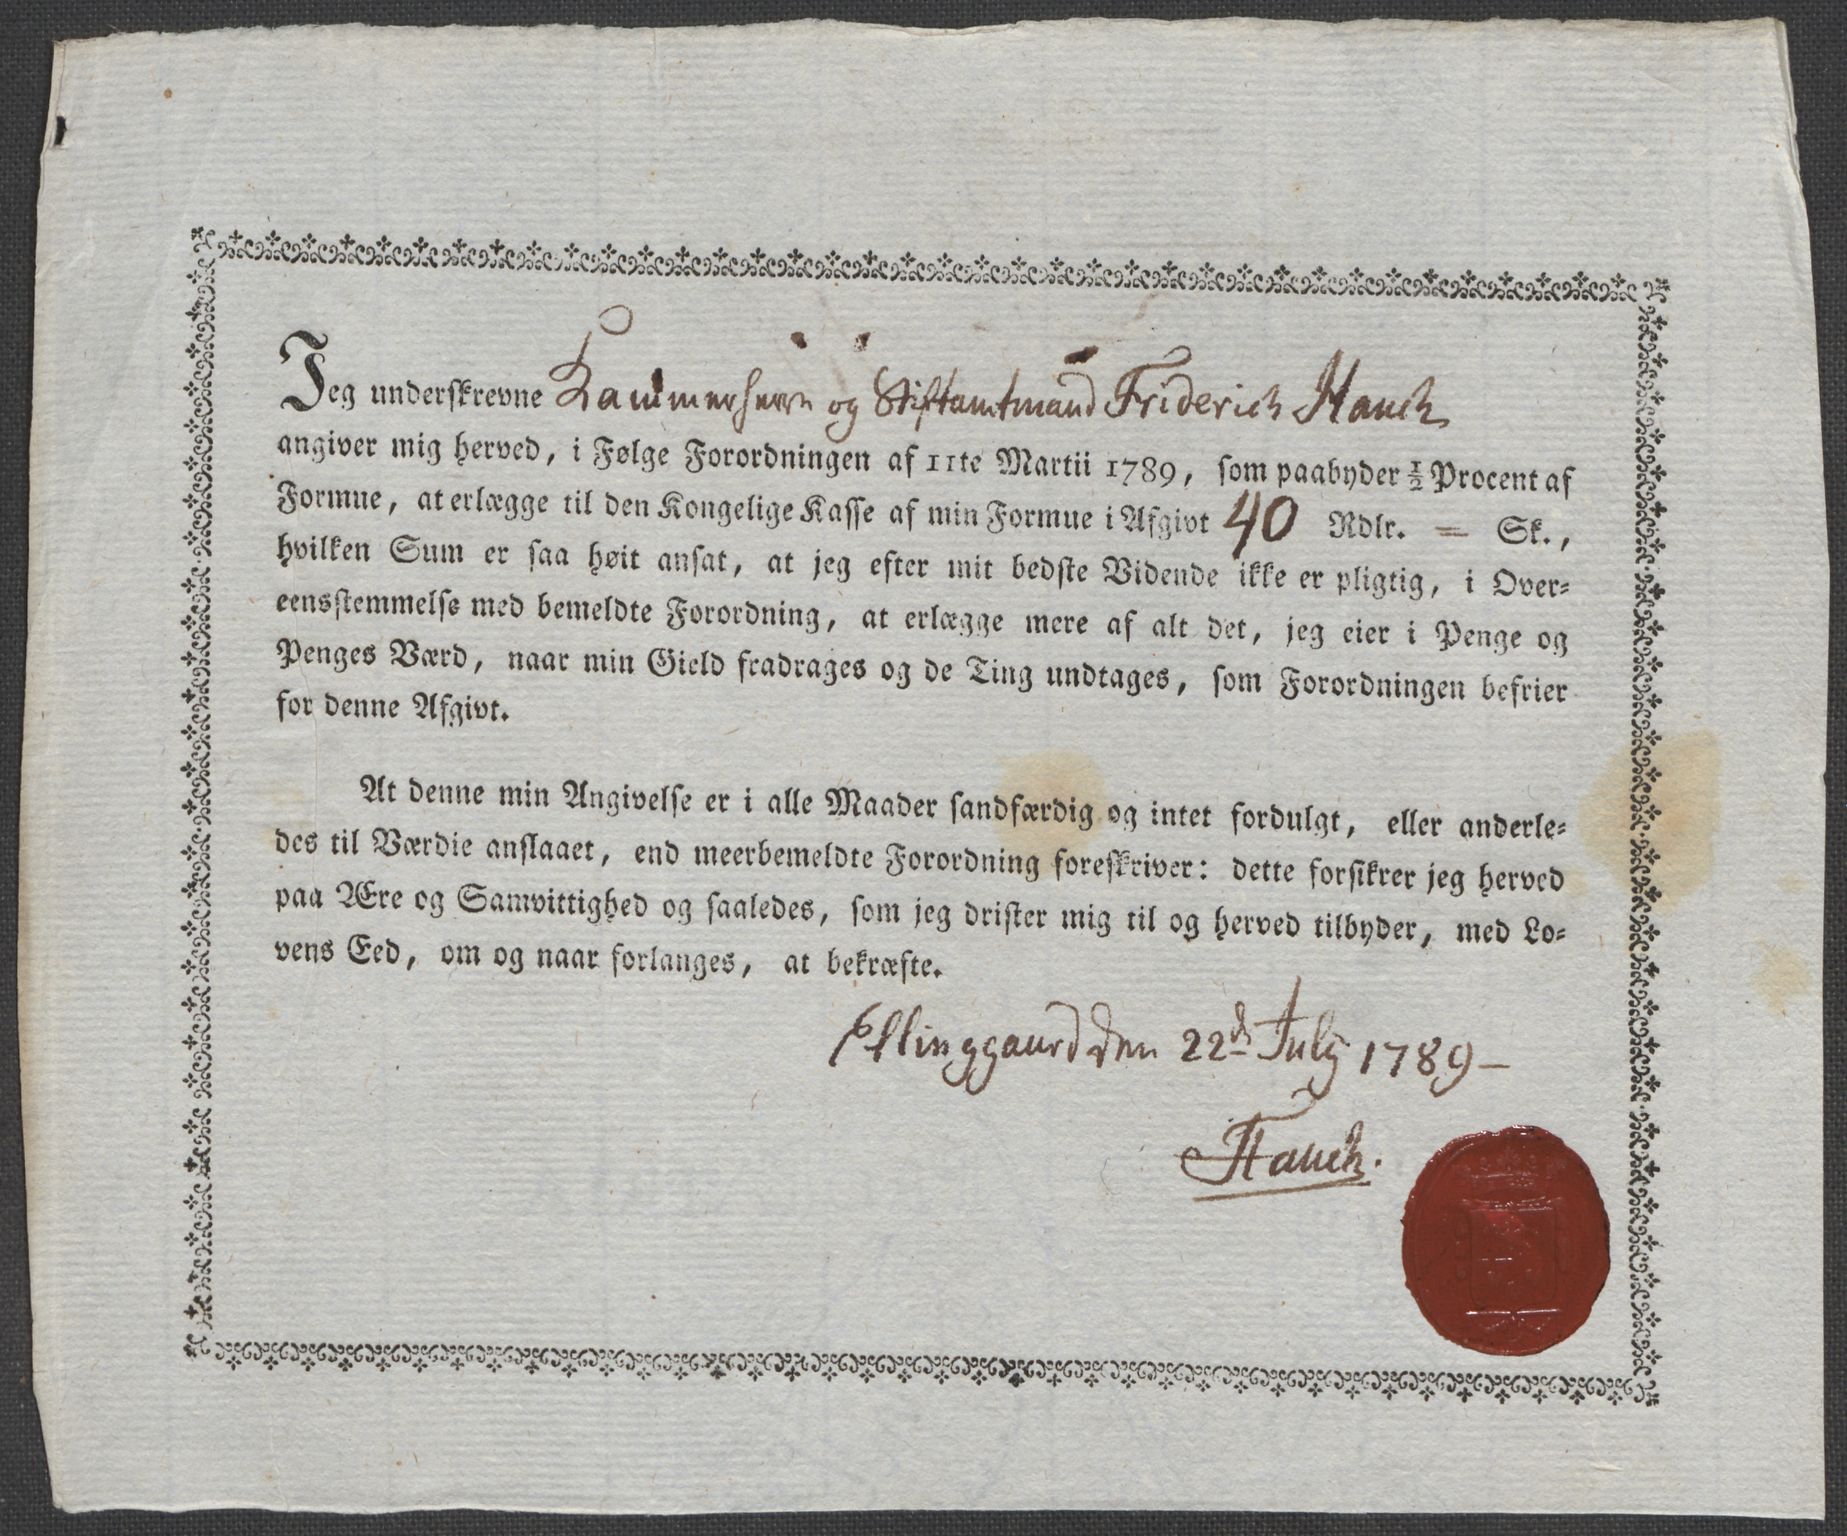 Jeg underskrevne Kammerherre og Stiftamtmand Friderich Hauch
angiver mig herved, i Følge Forordningen af 11te Martii 1789, som paabyder ½ Procent af
Formue, at erlægge til den Kongelige Kasse af min Formue i Afgivt 40 Rdlr. = Sk.,
hvilken Sum er saa høit ansat, at jeg efter mit bedste Vidende ikke er pligtig, i Over=
eensstemmelse med bemeldte Forordning, at erlægge mere af alt det, jeg eier i Penge og
Penges Værd, naar min Gield fradrages og de Ting undtages, som Forordningen befrier
for denne Afgivt.
At denne min Angivelse er i alle Maader sandfærdig og intet fordulgt, eller anderle=
des til Værdie anslaaet, end meerbemeldte Forordning foreskriver: dette forsikrer jeg herved
paa Ære og Samvittighed og saaledes, som jeg drister mig til og herved tilbyder, med Lo=
vens Eed, om og naar forlanges, at bekræfte.
Ellinggaard den 22de July 1789 –
Hauch.